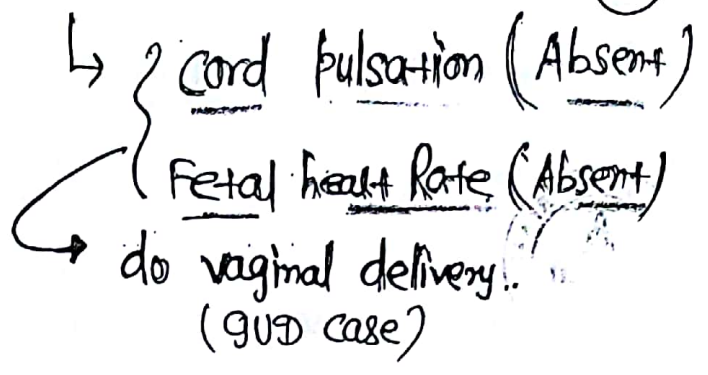 ↳ { Cord pulsation (Absent)
Fetal heart Rate (Absent)
→ do vaginal delivery..
(IUD Case)